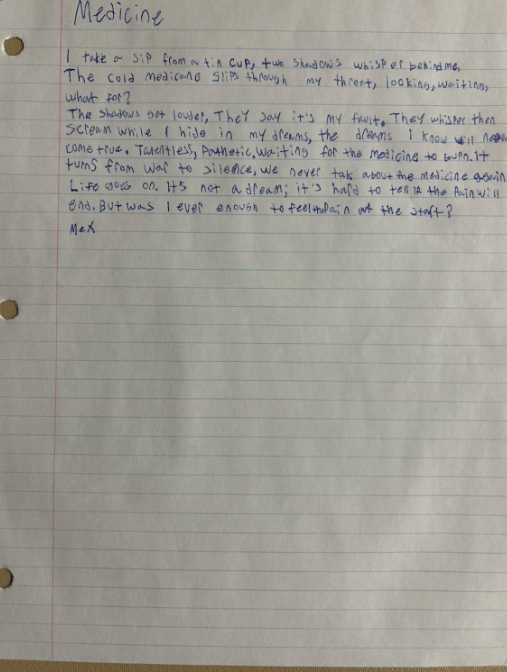 Medicine
I take a sip from a tin cup, two shadows whisper behind me.
The cold medicane slips through my throat, looking, waiting,
what for?
The shadows get louder, They say it's my fault, They whisper then
scream while I hide in my dreams, the dreams I know will never
come true. Talentless, Pathetic, waiting for the medicine to burn. It
turns from war to silence, we never talk about the medicine again
Life goes on. It's not a dream; it's hard to tell if the Pain will
end. But was I ever enough to feel pain at the start?